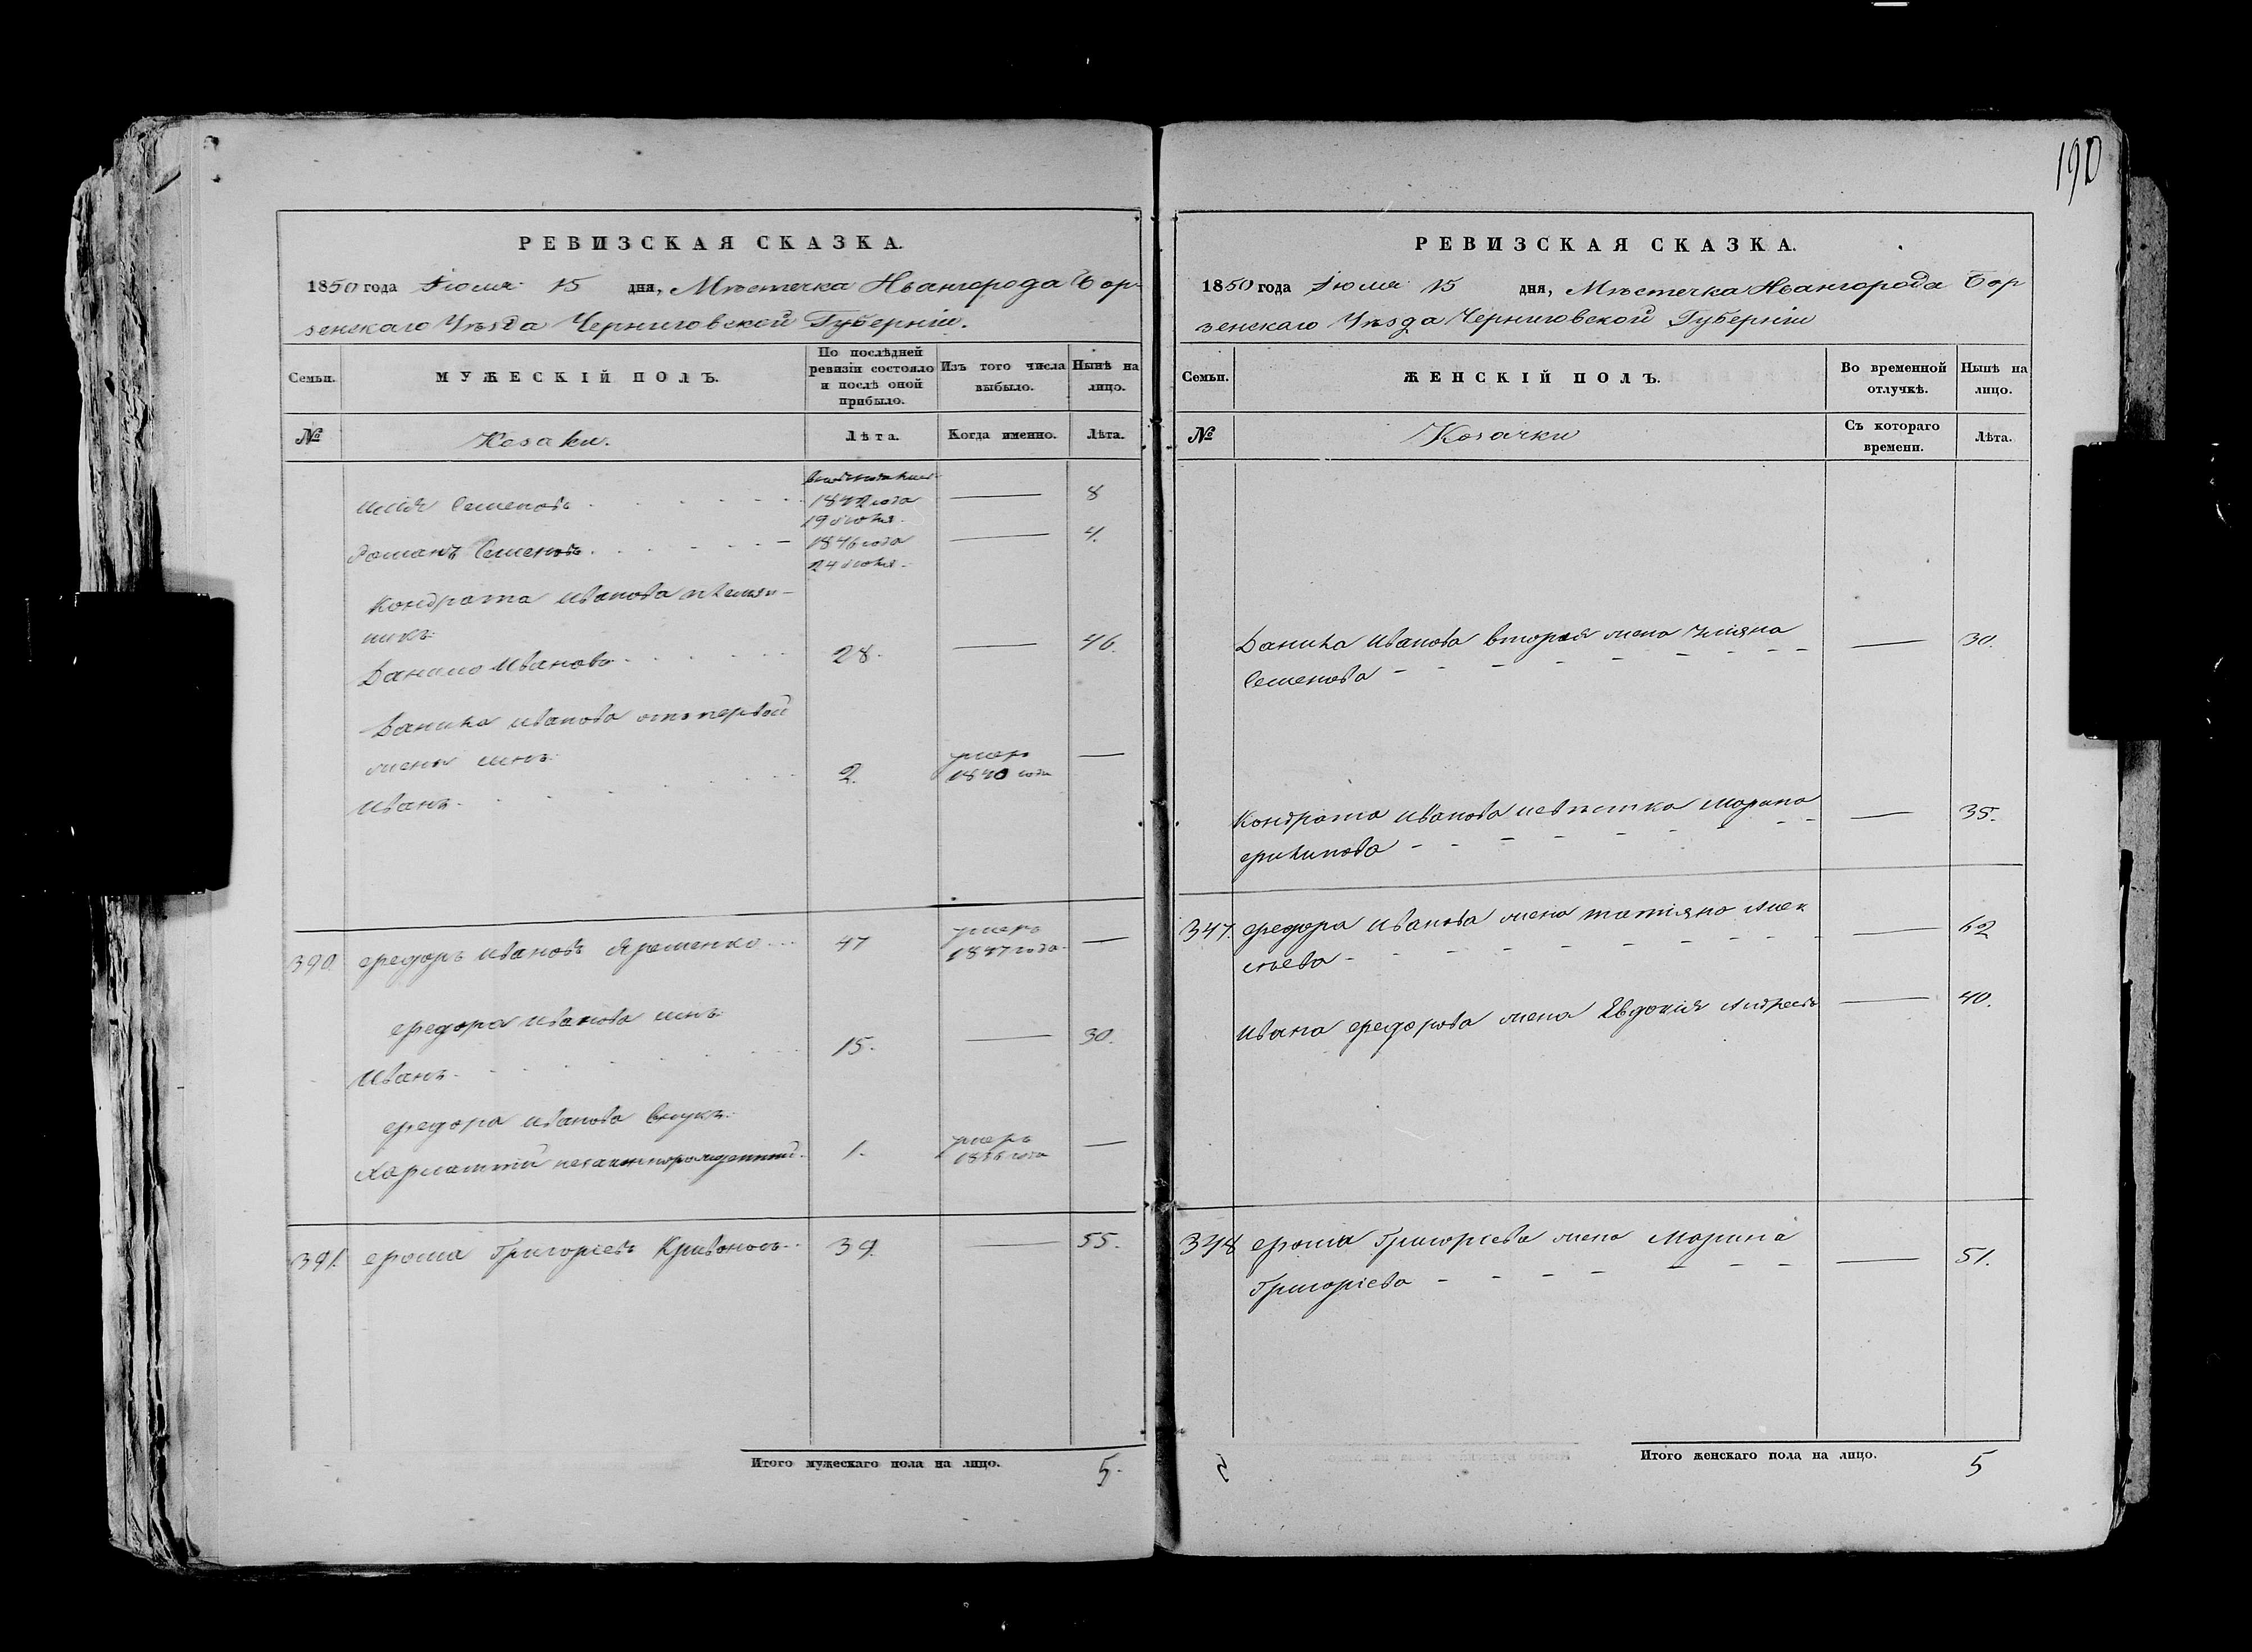 190
РЕВИЗСКАЯ СКАЗКА.
1850 года Іюля 15 дня, Мѣстечка Ивангорода Бор-
зенскаго Уѣзда Черниговской Губерніи.
Семьи.
МУЖЕСКІЙ ПОЛЪ.
По послѣдней
ревизіи состояло
и послѣ оной
прибыло.
Изъ того числа
выбыло.
Нынѣ на
лицо.
№
Козаки.
Лѣта.
Когда именно.
Лѣта.
Илія Семеновъ
1842 года
19 Іюля
8
Романъ Семеновъ
1846 года
24 Іюля
4.
Кондрата Иванова племян-
никъ
Данило Ивановъ
28.
46.
Данила Иванова отъ первой
жены сынъ
Иванъ
2.
умеръ
1840 года
390
Ѳедоръ Ивановъ Яременко
47
умеръ
1847 года
Ѳедора Иванова сынъ
Иванъ
15.
30.
Ѳедора Иванова внукъ
Харлампій незаконнорожденный
1.
умеръ
1836 года
391.
Ѳома Григоріевъ Кривонось
39.
55.
Итого мужескаго пола на лицо.
5.
РЕВИЗСКАЯ СКАЗКА.
1850 года Іюля 15 дня, Мѣстечка Ивангорода Бор
зенскаго Уѣзда Черниговской Губерніи
Семьи.
ЖЕНСКІЙ ПОЛЪ.
Во временной
отлучкѣ.
Нынѣ на
лицо.
№
Козачки
Съ котораго
времени.
Лѣта.
Данила Иванова вторая жена Уліяна
Семенова
30.
Кондрата Иванова невѣстка Марина
Филипова
35.
347.
Ѳедора Иванова жена Татіяна Алек
сѣева
62
Ивана Ѳедорова жена Евдокія Андреев
40.
348
Ѳомы Григоріева жена Марина
Григоріева
51.
Итого женскаго пола на лицо.
5